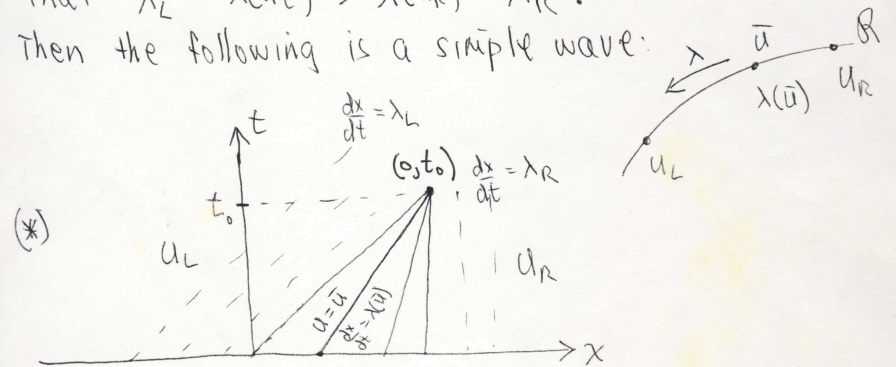 Then the following is a simple wave:
λ
ū
R
λ(ū)
u_R
u_L
t
dx/dt = λ_L
(0,t₀)
dx/dt = λ_R
t₀
(*)
u_L
u_R
u = ū
dx/dt = λ(ū)
x